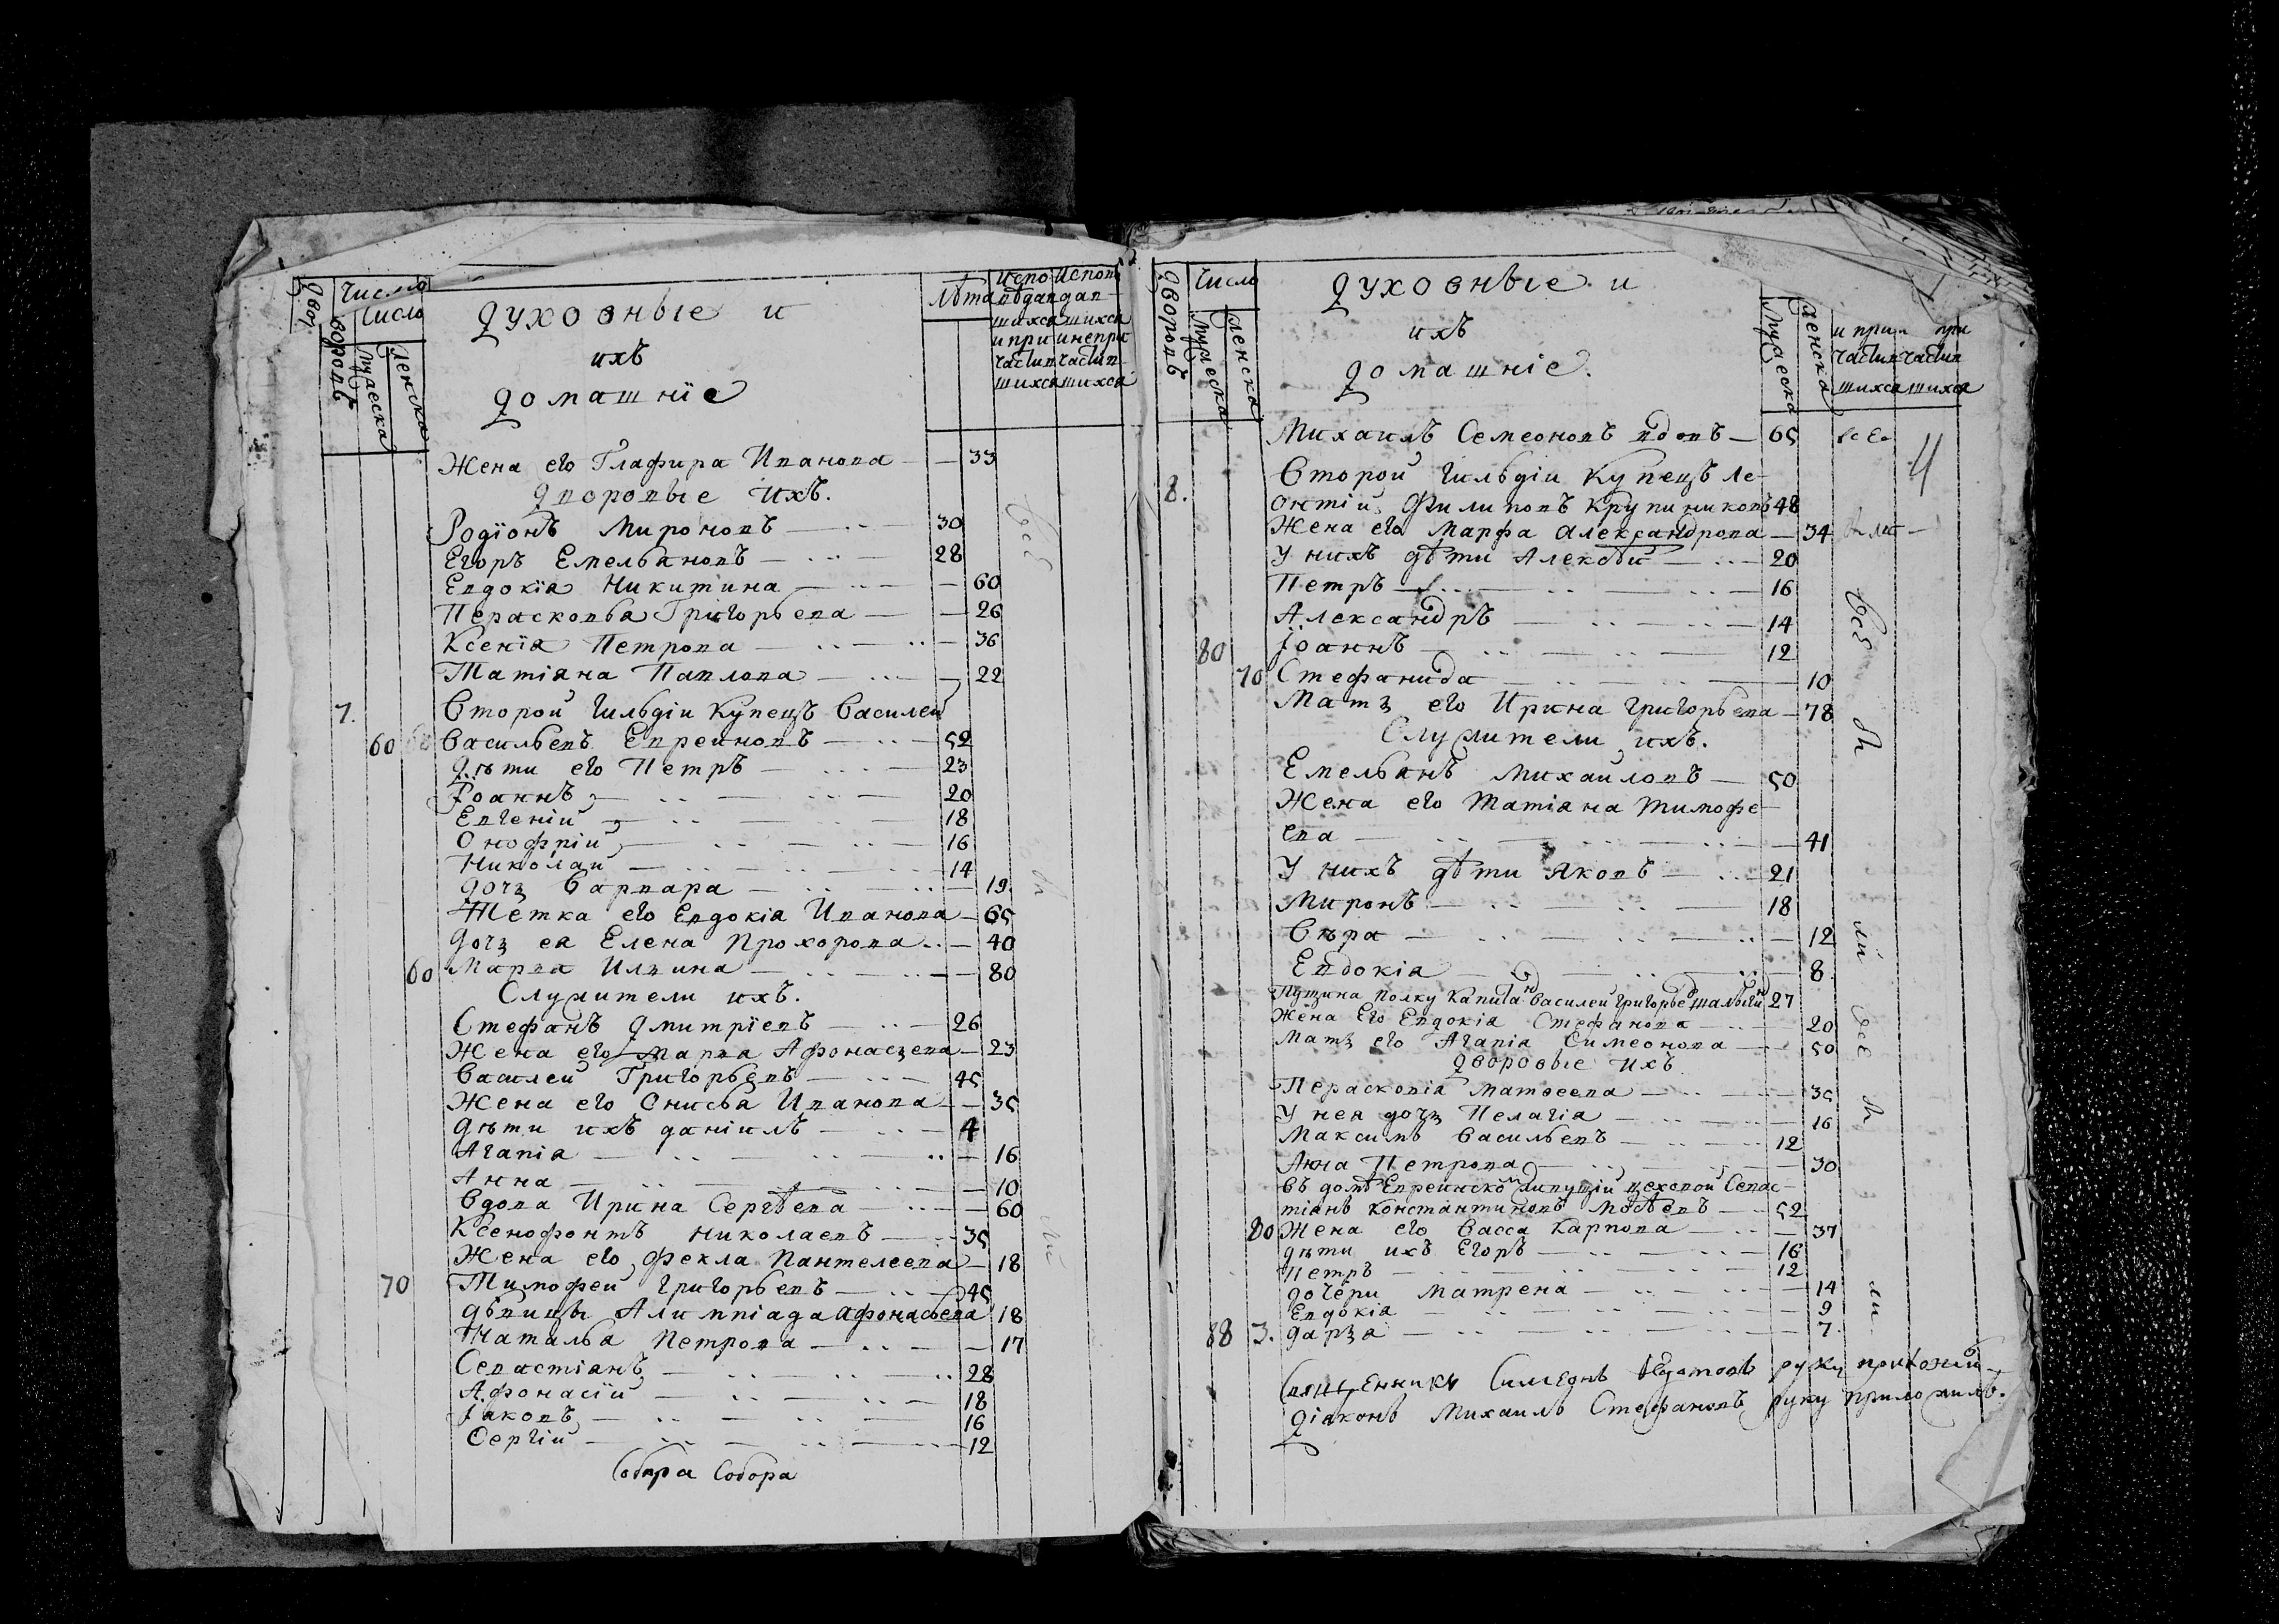 Число
Число
дворовъ
мужеска
женска
Духовные и
ихъ
домашніе
Лѣта
испо
вѣдав
шихся
и при
частив
шихся
исповѣ
дав
шихся
и непри
частив
шихся
Жена его Глафира Иванова — 33
Дворовые ихъ.
Родіонъ Мироновъ — 30
Егоръ Емельяновъ — 28
Евдокіа Никитина — 60
Перасковья Григорьева — 26
Ксеніа Петрова — 36
Татіана Павлова — 22
7. Второй Гильдіи Купецъ Василей
60 Васильевъ Евреиновъ — 52
Дѣти его Петръ — 23
Іоаннъ — 20
Евгеній — 18
Онофрій — 16
Николай — 14
Дочь Варвара — 19
Тетка его Евдокіа Иванова — 65
Дочь ея Елена Прохорова — 40
60 Марѳа Ильина — 80
Служители ихъ.
Стефанъ Дмитріевъ — 26
Жена его Марѳа Афонасьева — 23
Василей Григорьевъ — 45
Жена его Онисья Иванова — 35
Дѣти ихъ Даніилъ — 4
Агапіа — 16
Анна — 10
Вдова Ирина Сергѣева — 60
Ксенофонтъ Николаевъ — 35
Жена его Фекла Пантелеева — 18
70 Тимофей Григорьевъ — 45
Дѣвицы Алимпіада Афонасьева 18
Наталья Петрова — 17
Севастіанъ — 28
Афонасій — 18
Іаковъ — 16
Сергій — 12
Собора
всѣ
Дворовъ
Число
мужеска
женска
Духовные и
ихъ
домашніе.
мужеска
женска
и при
частив
шихся
при
частив
шихся
Михаилъ Семеоновъ вдовъ — 65
4
Второй Гильдіи Купецъ Ле-
8. онтій Филиповъ Крупениковъ 48
Жена его Марфа Александрова — 34
У нихъ дѣти Алексѣй — 20
Петръ — 16
Александръ — 14
80 Іоаннъ — 12
70 Стефанида — 10
Мать его Ирина Григорьева — 78
Служители ихъ.
Емельянъ Михаиловъ — 50
Жена его Татіана Тимофе-
ева — 41
У нихъ дѣти Яковъ — 21
Миронъ — 18
Вѣра — 12
Евдокіа — 8
полку Капитанъ Василей Григорьевъ 27
Жена Его Евдокіа Стефанова — 20
Мать его Агапіа Симеонова — 50
Дворовые ихъ
Перасковіа Матѳеева — 35
У нея дочь Пелагіа — 16
Максимъ Васильевъ — 12
Анна Петрова — 30
Въ домѣ Евреинско живущій цеховой Севас-
тіанъ Константиновъ — 52
80 Жена его Васса Карпова — 37
Дѣти ихъ Егоръ — 16
Петръ — 12
Дочери Матрена — 14
Евдокіа — 9
88 3. Дарья — 7.
всѣ
всѣ
Священникъ Симеонъ руку приложилъ
Діаконъ Михаилъ Стефановъ руку приложилъ.